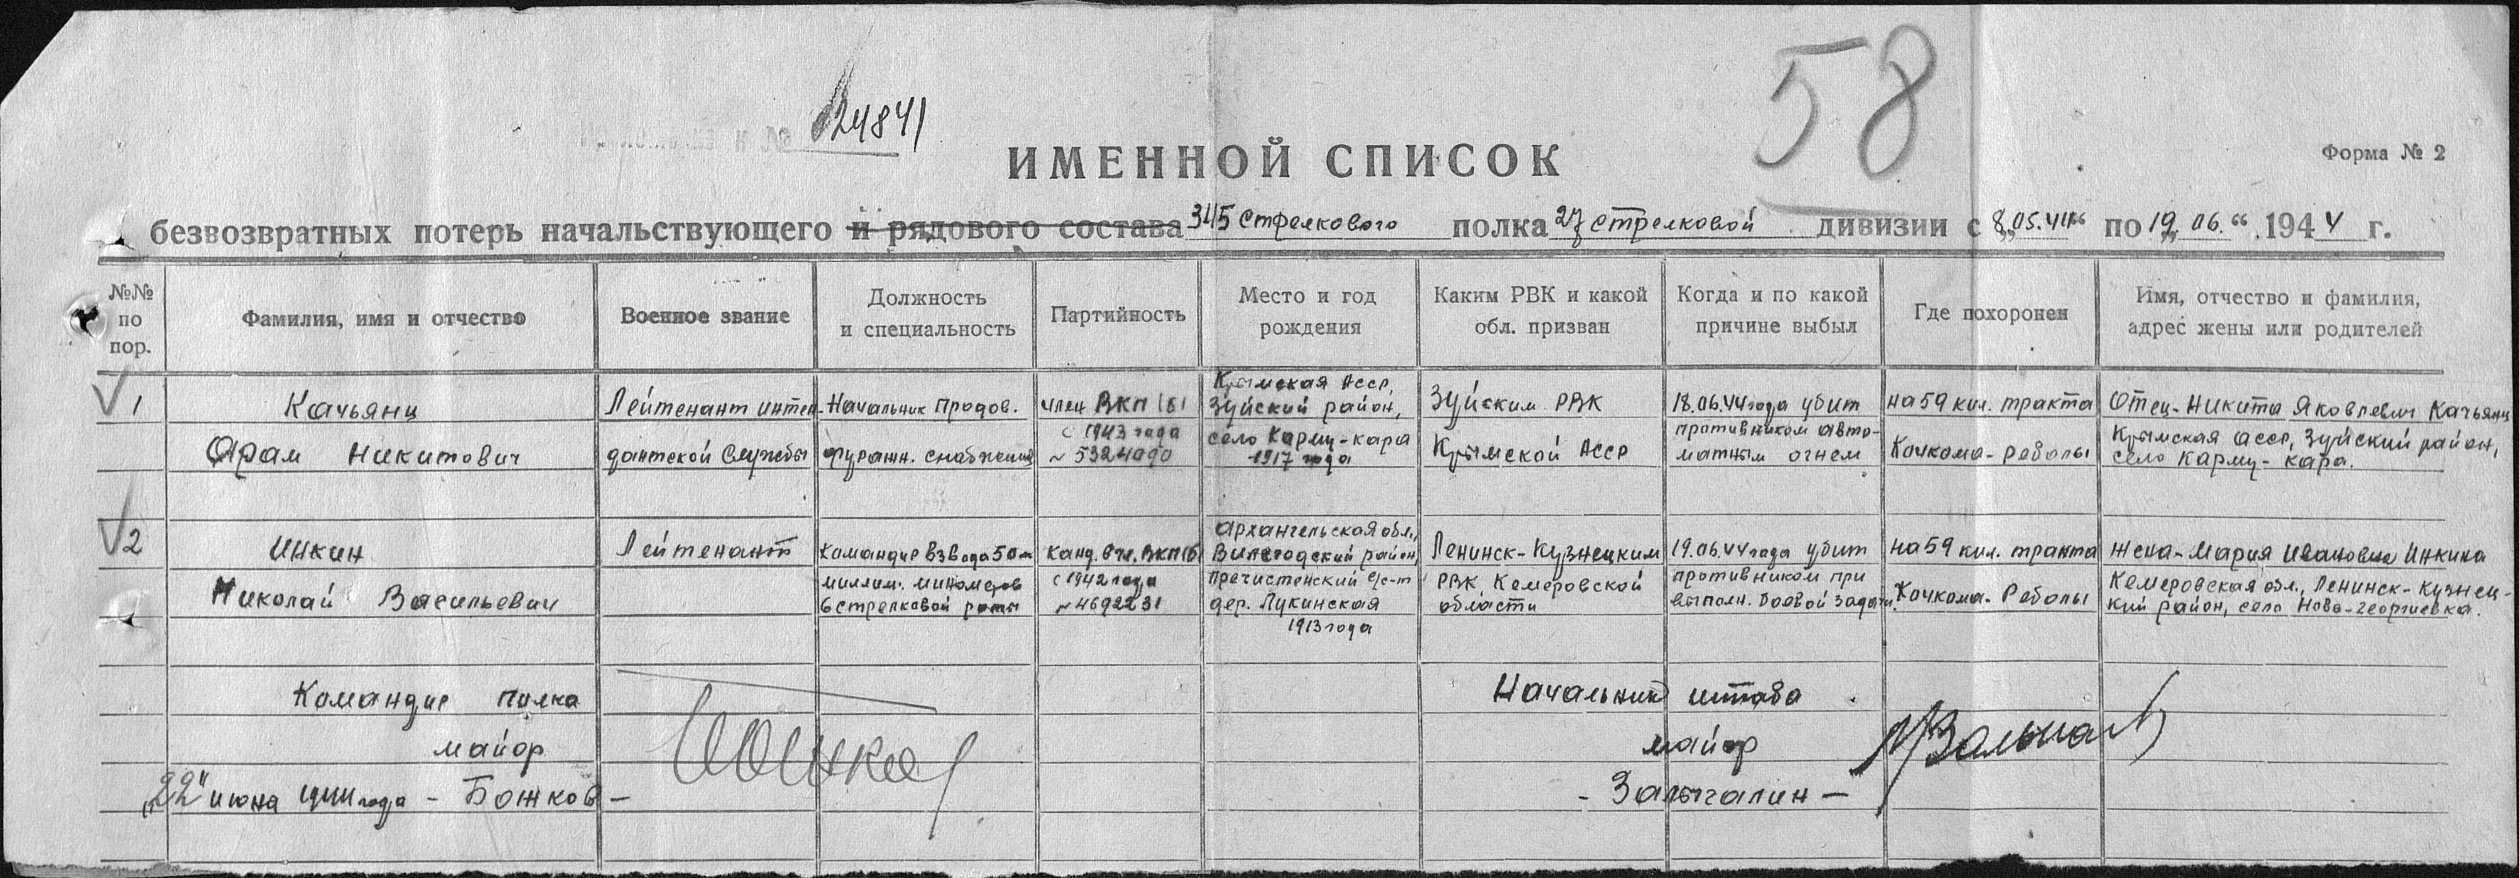 24841
58
ИМЕННОЙ СПИСОК
Форма № 2
безвозвратных потерь начальствующего и рядового состава 345 Стрелкового полка 27 Стрелковой дивизии с „8.05.44“ по „19.06.“ 1944 г.
№№ по пор.
Фамилия, имя и отчество
Военное звание
Должность и специальность
Партийность
Место и год рождения
Каким РВК и какой обл. призван
Когда и по какой причине выбыл
Где похоронен
Имя, отчество и фамилия, адрес жены или родителей
1
Качьянц
Арам Никитович
Лейтенант интен-
дантской Службы
Начальник Продов.
фуражн. снабжения
член ВКП(б)
с 1943 года
Крымская Асср,
Зуйский район,
село Карму-кара
1917 года
Зуйским РВК
Крымской Асср
18.06.44 года убит
противником авто-
матным огнем
на 59 кил. тракта
Кочкома-реболы
Отец-Никита Яковлевич Качьянц
Крымская асср, Зуйский район,
село Карму-кара.
2
Инкин
Николай Васильевич
Лейтенант
Командир взвода 50м
миллим. минометов
6 стрелковой роты
Канд. в чл. ВКП(б)
с 1942 года
№ 4692231
Архангельская обл.,
Вилегодский район,
Пречистенский с/с-т
дер. Лукинская
1913 года
Ленинск-Кузнецким
РВК Кемеровской
области
19.06.44 года убит
противником при
выполн. боевой задачи.
на 59 кил. тракта
Кочкома-Реболы
жена-Мария Ивановна Инкина
Кемеровская обл., Ленинск-Кузнец-
кий район, село Ново-георгиевка.
Командир полка
майор
- Божков -
„22“ июня 1944 года
Начальник штаба
майор
- Залыгалин -